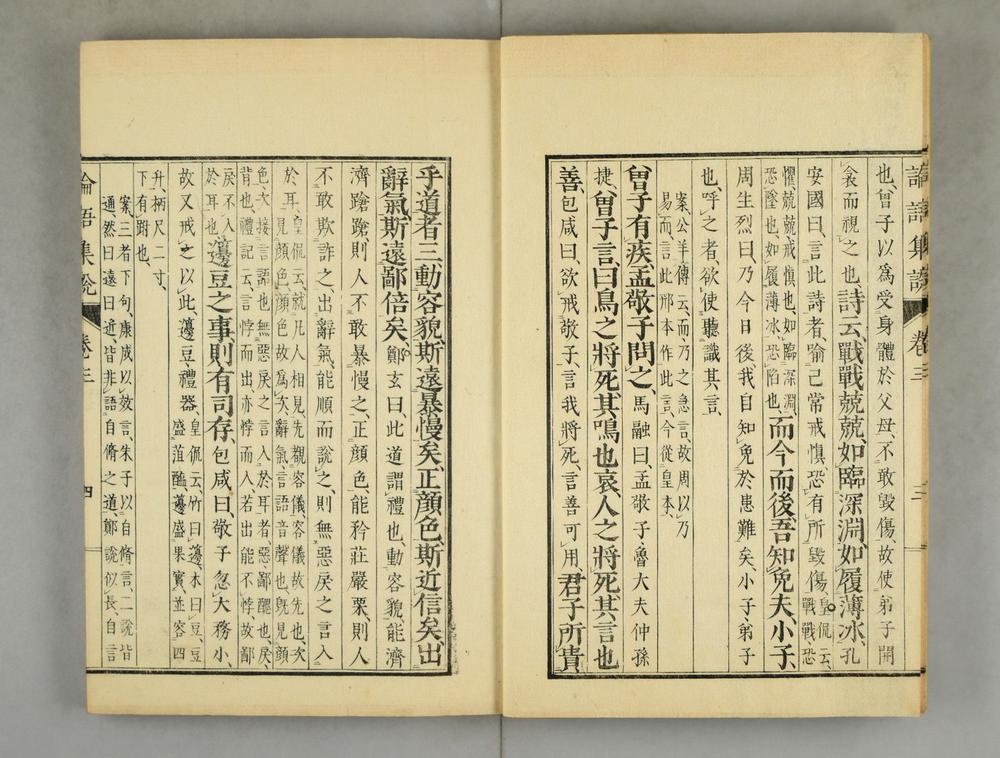 論語集說 卷三 三
也、曾子以為受身體於父母、不敢毀傷、故使弟子開
衾而視之也、詩云、戰戰兢兢、如臨深淵、如履薄冰、孔
安國曰、言此詩者、喻己常戒慎恐有所毀傷、皇侃云、戰戰、恐
懼、兢兢、戒慎也、如臨深淵、恐墜也、如履薄冰、恐陷也、而今而後、吾知免夫、小子、
周生烈曰、乃今日後我自知免於患難矣、小子、弟子
也、呼之者、欲使聽識其言、
案、公羊傳云、而、乃之急言、故周以乃
易而、此邢本作此言、今從皇本、
曾子有疾、孟敬子問之、馬融曰、孟敬子魯大夫仲孫
捷、曾子言曰、鳥之將死、其鳴也哀、人之將死、其言也
善、包咸曰、欲戒敬子、言我將死、言善可用、君子所貴
乎道者三、動容貌、斯遠暴慢矣、正顏色、斯近信矣、出
辭氣、斯遠鄙倍矣、鄭玄曰、此道謂禮也、動容貌、能濟
濟蹌蹌、則人不敢暴慢之、正顏色、能矜莊嚴栗、則人
不敢欺詐之、出辭氣、能順而說之、則無惡戾之言入
於耳、皇侃云、就凡人相見、先觀容儀、容儀故先也、次見顏色、顏色故為次、辭氣、言語音聲也、既見顏
色、次接言語也、無惡戾之言入於耳者、惡、鄙醜也、戾、背也、禮記云、言悖而出、亦悖而入、若出能不悖、故鄙
戾不入於耳也、籩豆之事、則有司存、包咸曰、敬子忽大務小、
故又戒之以此、籩豆、禮器、皇侃云、竹曰籩、木曰豆、豆盛菹醢、籩盛果實、並容四
升、柄尺二寸、下有跗也、
案、三者下句、康成以效言、朱子以自脩言、二說皆
通、然曰遠曰近、皆非語自脩之道、鄭說似長、自言
論語集說 卷三 四